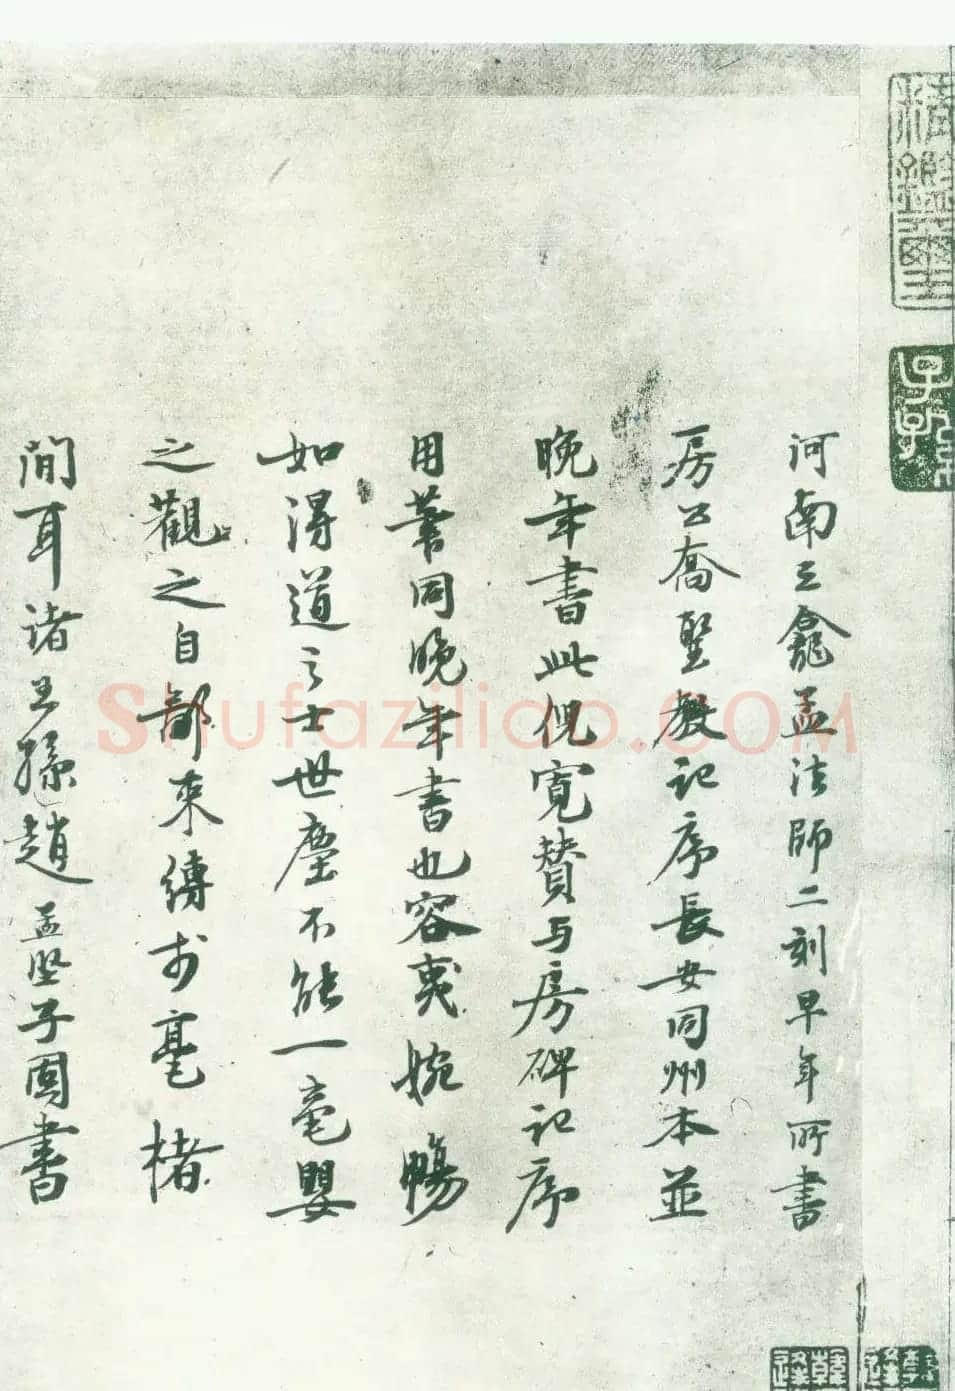 河南三龕孟法師二刻早年所書
房公喬聖教記序長安同州本並
晚年書此倪寬贊与房碑記序
用筆同晚年書也容夷婉暢
如得道之士世塵不能一毫嬰
之觀之自鄙束縛於毫楮
間耳諸王孫趙孟堅子固書
Shufaziliao.COM